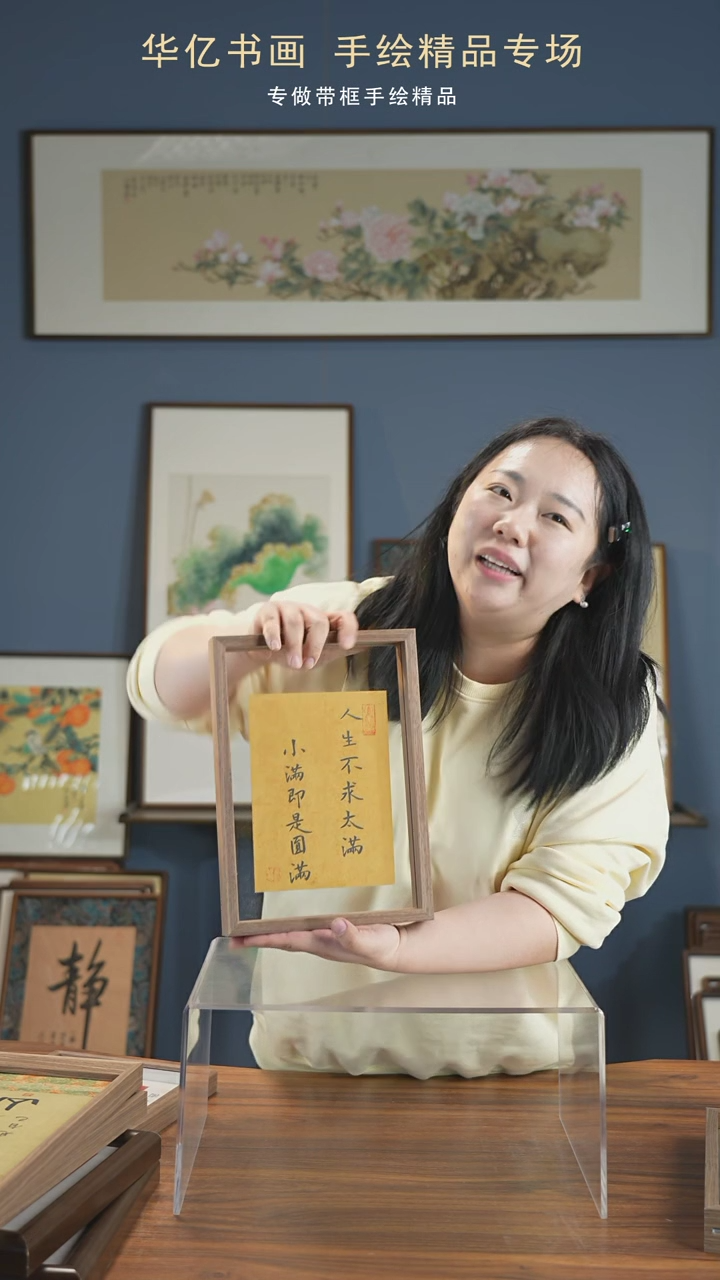 华亿书画 手绘精品专场
专做带框手绘精品
人生不求太满
小满即是圆满
静